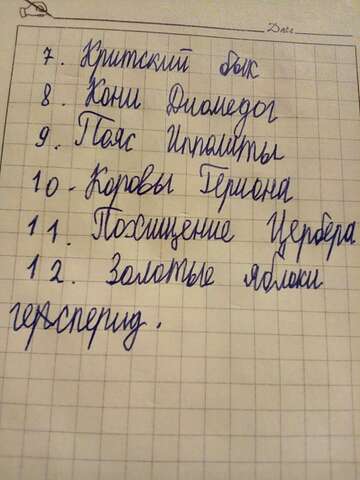 Дпсс
7. Критский бык
8. Кони Диомедог
9. Пояс Ипполиты
10. Коровы Гериона
11. Похищение Цербера
12. Золотые яблоки
гесперид.